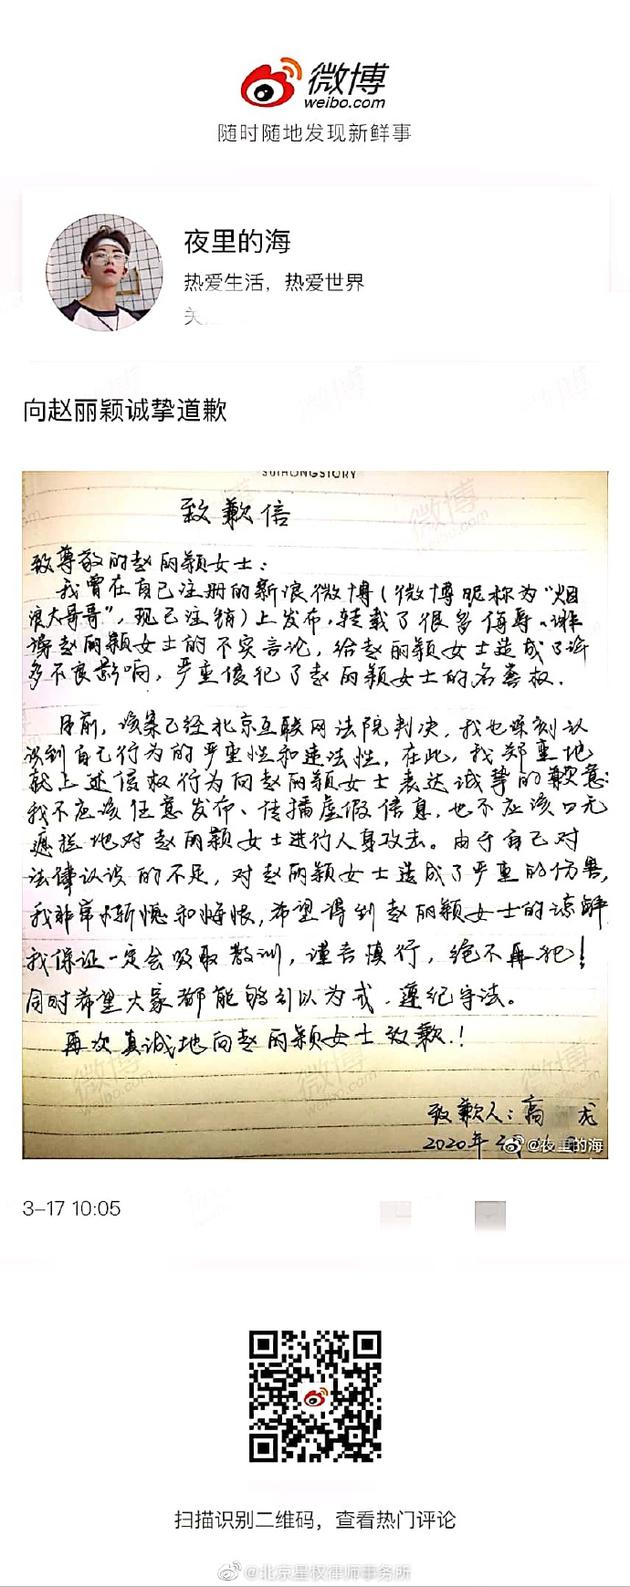 微博
weibo.com
随时随地发现新鲜事
夜里的海
热爱生活，热爱世界
向赵丽颖诚挚道歉
SUIHONGSTORY
致歉信
致尊敬的赵丽颖女士：
我曾在自己注册的新浪微博（微博昵称为“烟
浪大哥哥”，现已注销）上发布，转载了很多侮辱、诽
谤赵丽颖女士的不实言论，给赵丽颖女士造成了许
多不良影响，严重侵犯了赵丽颖女士的名誉权．
目前，该案已经北京互联网法院判决，我也深刻认
识到自己行为的严重性和违法性，在此，我郑重地
就上述侵权行为向赵丽颖女士表达诚挚的歉意：
我不应该任意发布、传播虚假信息，也不应该口无
遮拦地对赵丽颖女士进行人身攻击。由于自己对
法律认识的不足，对赵丽颖女士造成了严重的伤害，
我非常惭愧和悔恨，希望得到赵丽颖女士的谅解
我保证一定会吸取教训，谨言慎行，绝不再犯！
同时希望大家都能够引以为戒，遵纪守法。
再次真诚地向赵丽颖女士致歉！
致歉人：高 龙
2020年
@夜里的海
3-17 10:05
扫描识别二维码，查看热门评论
@北京星权律师事务所